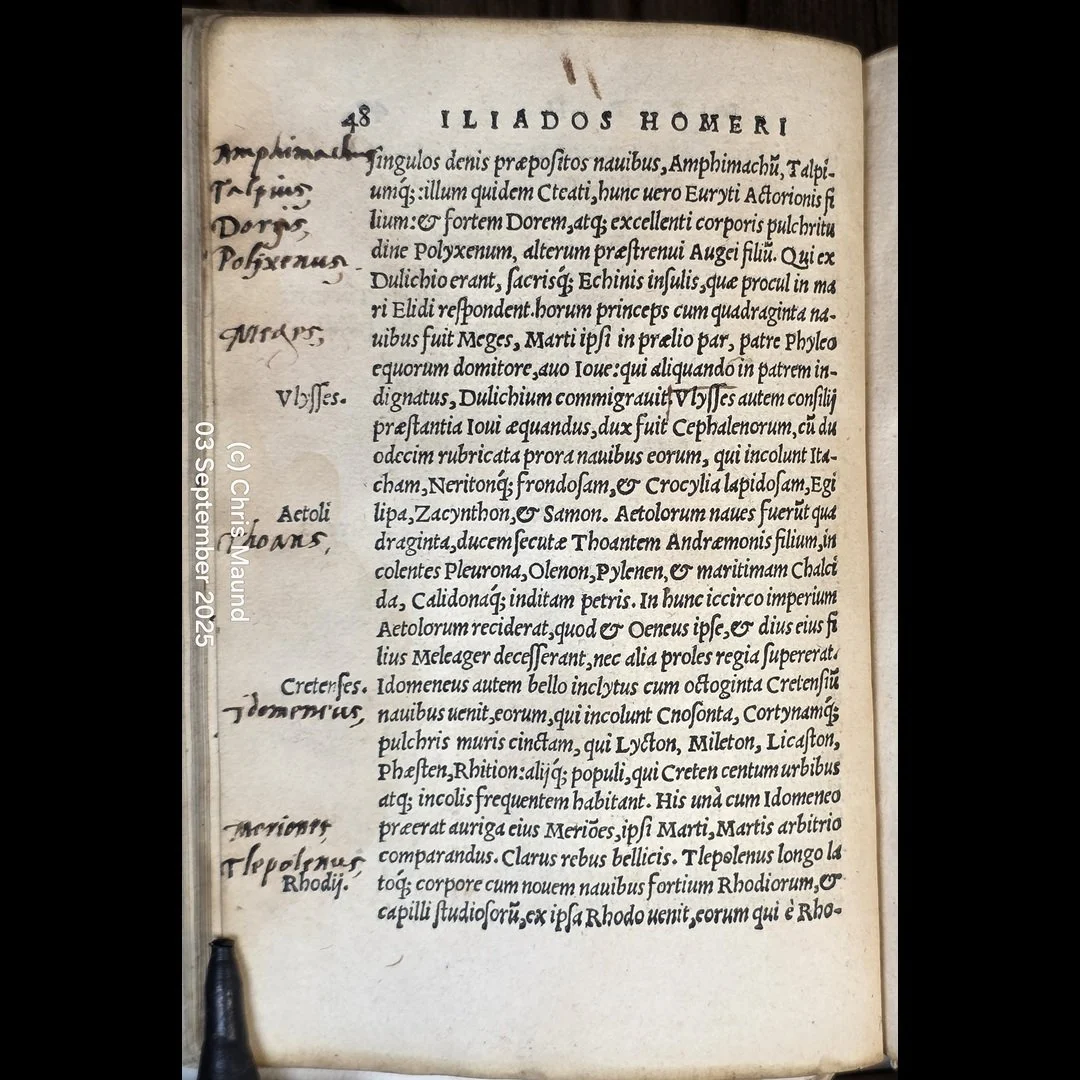 48 ILIADOS HOMERI
Amphimachus
ſingulos denis præpoſitos nauibus, Amphimachū, Talpi-
Talpius,
umq́;:illum quidem Cteati, hunc uero Euryti Actorionis fi
Dorẽs,
lium:& fortem Dorem, atq; excellenti corporis pulchritu
Polyxenus
dine Polyxenum, alterum præſtrenui Augei filiū. Qui ex
Dulichio erant, ſacrisq́; Echinis inſulis, quæ procul in ma
ri Elidi reſpondent.horum princeps cum quadraginta na-
Meges,
uibus fuit Meges, Marti ipſi in prælio par, patre Phyleo
equorum domitore, auo Ioue:qui aliquando in patrem in-
Vlyſſes.
dignatus, Dulichium commigrauit. Vlyſſes autem conſilij
præſtantia Ioui æquandus, dux fuit Cephalenorum, cū du
odecim rubricata prora nauibus eorum, qui incolunt Ita-
cham, Neritonq́; frondoſam, & Crocylia lapidoſam, Egi
Aetoli
lipa, Zacynthon, & Samon. Aetolorum naues fuerūt qua
Thoans,
draginta, ducem ſecutæ Thoantem Andræmonis filium, in
colentes Pleurona, Olenon, Pylenen, & maritimam Chalci
da, Calidonaq́; inditam petris. In hunc iccirco imperium
Aetolorum reciderat, quod & Oeneus ipſe, & dius eius fi
lius Meleager deceſſerant, nec alia proles regia ſupererat.
Cretenſes.
Idomeneus autem bello inclytus cum octoginta Cretenſiū
Idomeneus,
nauibus uenit, eorum, qui incolunt Cnoſonta, Cortynamq́;
pulchris muris cinctam, qui Lycton, Mileton, Licaſton,
Phæſten, Rhition:alijq́; populi, qui Creten centum urbibus
atq; incolis frequentem habitant. His unà cum Idomeneo
Meriones
præerat auriga eius Meriōes, ipſi Marti, Martis arbitrio
Tlepolenus,
comparandus. Clarus rebus bellicis. Tlepolenus longo la
Rhodij.
toq́; corpore cum nouem nauibus fortium Rhodiorum, &
capilli ſtudioſorū, ex ipſa Rhodo uenit, eorum qui è Rho-
(c) Chris Maund
03 September 2025